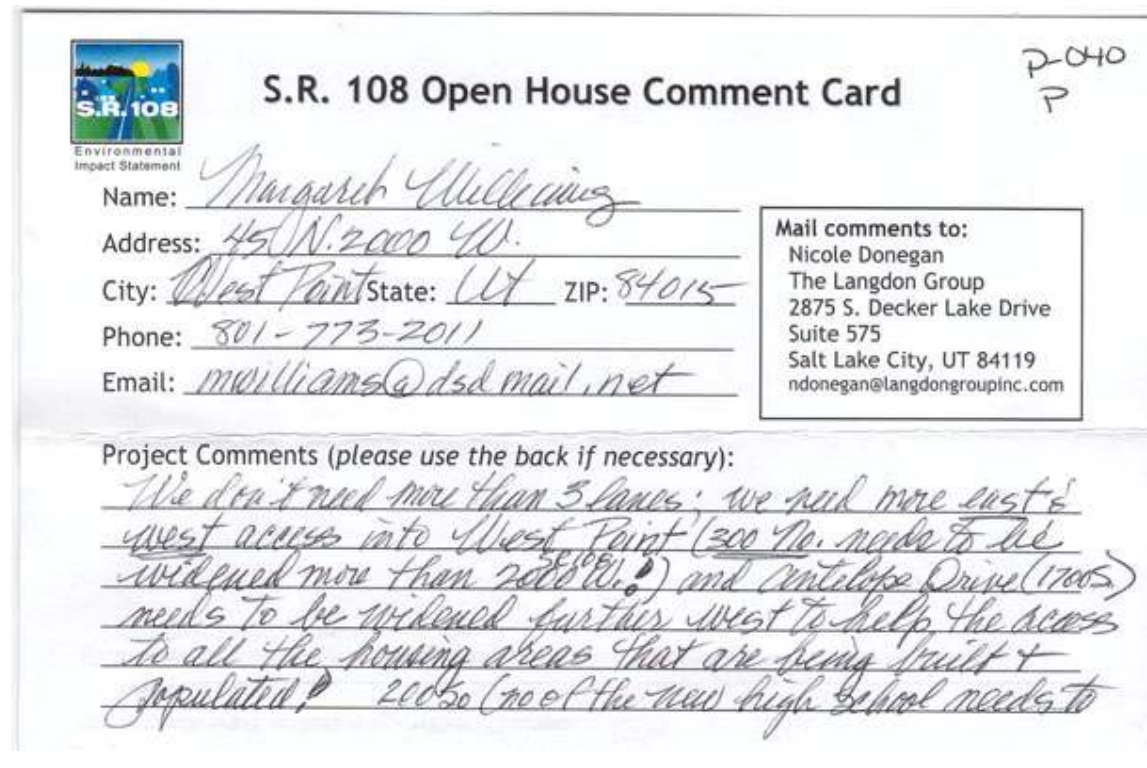 P-040
P
S.R. 108
Environmental
Impact Statement
S.R. 108 Open House Comment Card
Name: Margaret
Address: 45 N. 2000 W.
City: West Point State: Ut ZIP: 84015
Phone: 801-773-2011
Email: mwilliams@dsdmail.net
Mail comments to:
Nicole Donegan
The Langdon Group
2875 S. Decker Lake Drive
Suite 575
Salt Lake City, UT 84119
ndonegan@langdongroupinc.com
Project Comments (please use the back if necessary):
We don't need more than 3 lanes; we need more east &
west access into West Point (300 No. needs to be
widened more than 2000 W.!) and Antelope Drive (1700 S.)
needs to be widened further west to help the access
to all the housing areas that are being built +
populated! 200 So (no of the new high school needs to